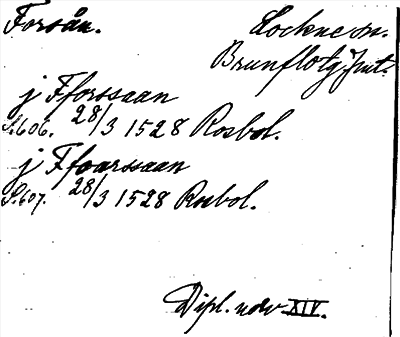 Forsån.
Lockne sn.
Brunflo tg Jmt.
j Fforssaan
S. 606. 28/3 1528 Rosbol.
j Ffoarssaan
S. 607. 28/3 1528 Rosbol.
Dipl. norv XIV.